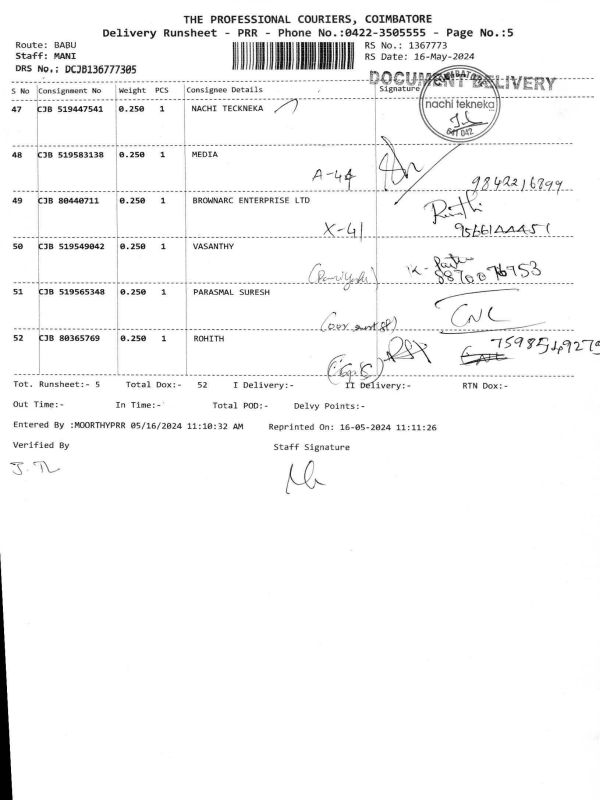 THE PROFESSIONAL COURIERS, COIMBATORE
Delivery Runsheet - PRR - Phone No.:0422-3505555 - Page No.:5
Route: BABU RS No.: 1367773
Staff: MANI RS Date: 16-May-2024
DRS No.: DCJB136777305
DOCUMENT DELIVERY
S No Consignment No Weight PCS Consignee Details Signature
47 CJB 519447541 0.250 1 NACHI TECKNEKA
nachi tekneka
641 042
48 CJB 519583138 0.250 1 MEDIA
A-44 9842216899
49 CJB 80440711 0.250 1 BROWNARC ENTERPRISE LTD
X-41
50 CJB 519549042 0.250 1 VASANTHY
8870076753
51 CJB 519565348 0.250 1 PARASMAL SURESH
CNL
52 CJB 80365769 0.250 1 ROHITH
7598549275
Tot. Runsheet:- 5 Total Dox:- 52 I Delivery:- II Delivery:- RTN Dox:-
Out Time:- In Time:- Total POD:- Delvy Points:-
Entered By :MOORTHYPRR 05/16/2024 11:10:32 AM Reprinted On: 16-05-2024 11:11:26
Verified By Staff Signature